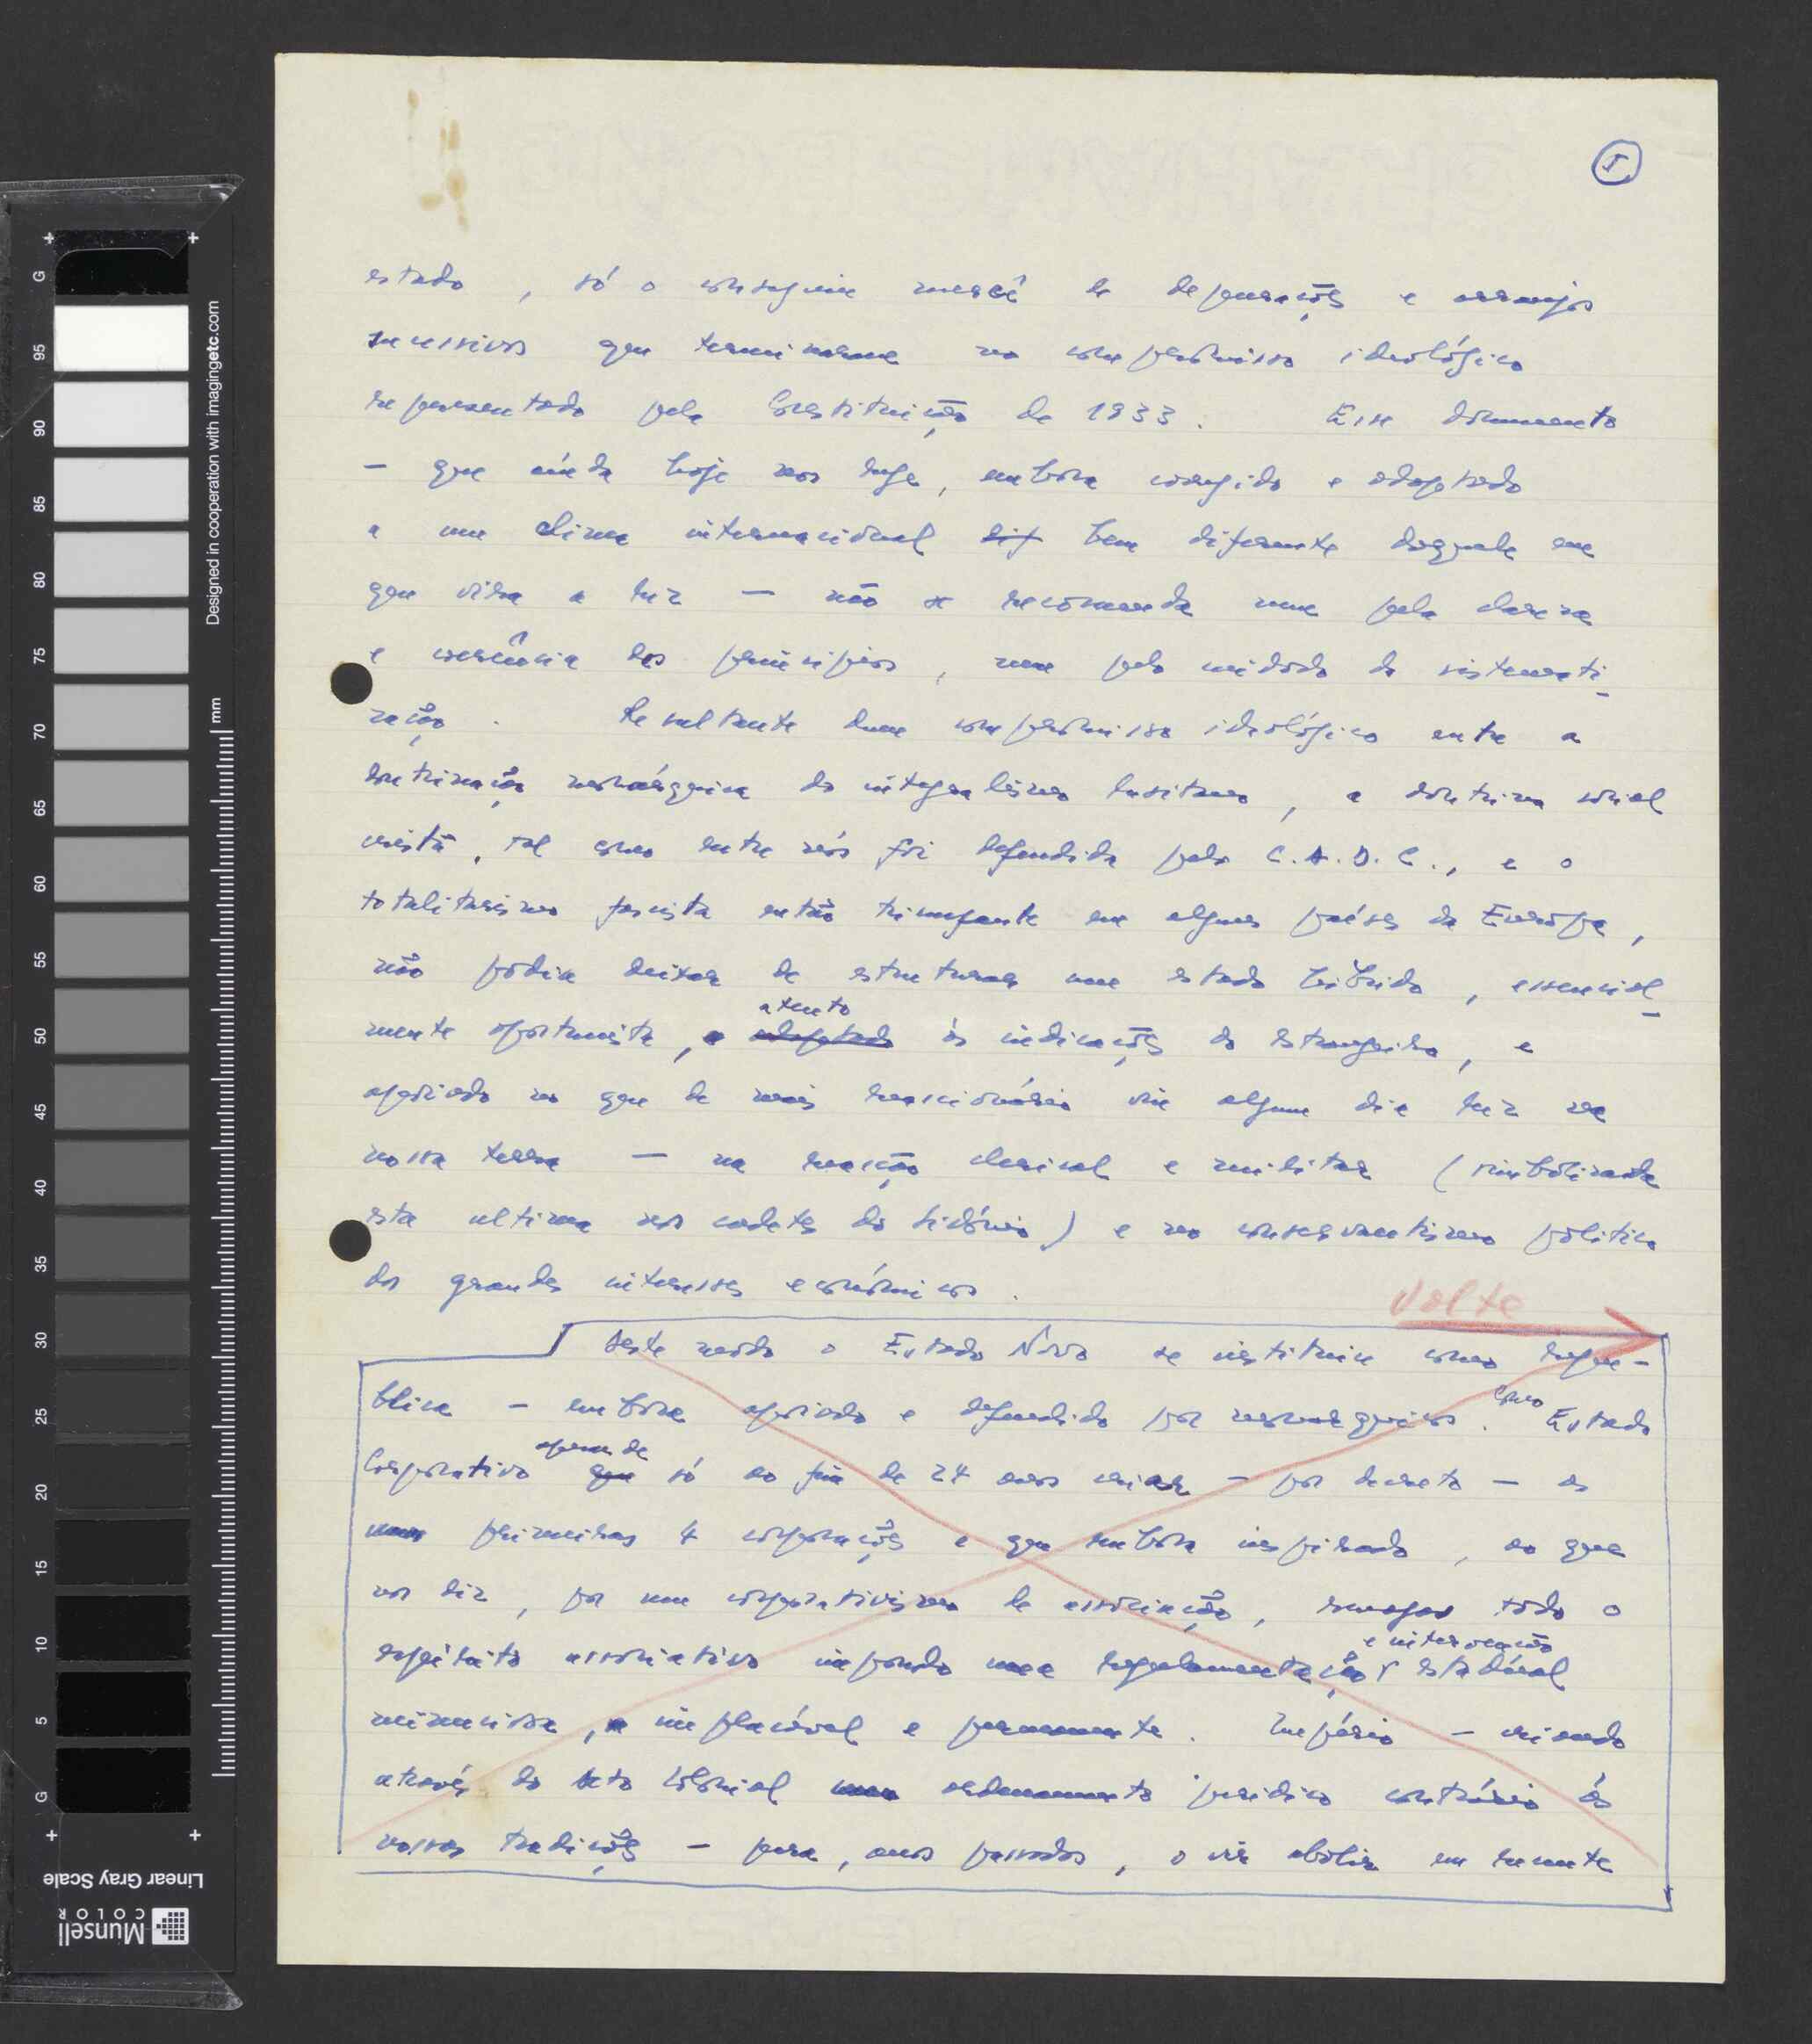 5
estado, só o conseguiu mercê de depurações e arranjos
sucessivos que terminaram no compromisso ideológico
representado pela Constituição de 1933. Esse documento
— que ainda hoje nos rege, embora corrigido e adaptado
a um clima internacional dif bem diferente daquele em
que vira a luz — não se recomenda nem pela clareza
e coerência dos princípios, nem pelo cuidado da sistemati-
zação. Resultante dum compromisso ideológico entre a
doutrinação monárquica do integralismo lusitano, a doutrina social
cristã, tal como entre nós foi defendida pelo C.A.D.C., e o
totalitarismo fascista então triunfante em alguns países da Europa,
não podia deixar de estruturar um estado híbrido, essencial-
mente oportunista, e adaptado atento às indicações do estrangeiro, e
apoiado no que de mais reaccionário viu algum dia luz na
nossa terra — na reacção clerical e militar (simbolizada
esta ultima nos cadetes do Sidónio) e no conservantismo político
dos grandes interesses económicos.
Volte
Deste modo o Estado Novo se instituiu como repu-
blica — embora apoiado e defendido por monarquicos. Como Estado
Corporativo que apesar de só ao fim de 24 anos criar — por decreto — as
primeiras 4 corporações e que embora inspirado, ao que
nos diz, por um corporativismo de associação, renegar todo o
espírito associativo impondo uma regulamentação e intervenção estadual
minuciosa, implacável e permanente. Império — criando
através do Acto Colonial ordenamento juridico contrário às
nossas tradições — para, anos passados, o vir abolir
Designed in cooperation with imagingetc.com
mm
G
95
90
85
80
75
70
65
60
55
50
45
40
35
30
25
20
15
10
5
G
Linear Gray Scale
Munsell
COLOR